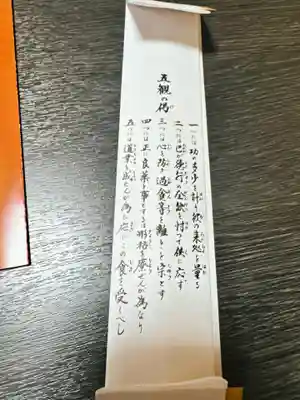 五観の偈
一つには功の多少を計り彼の来処を量る
二つには己が徳行の全缺を忖って供に応ず
三つには心を防ぎ過貪等を離るるを宗とす
四つには正に良薬を事とするは形枯を療ぜんが為なり
五つには道業を成ぜんが為に応にこの食を受くべし